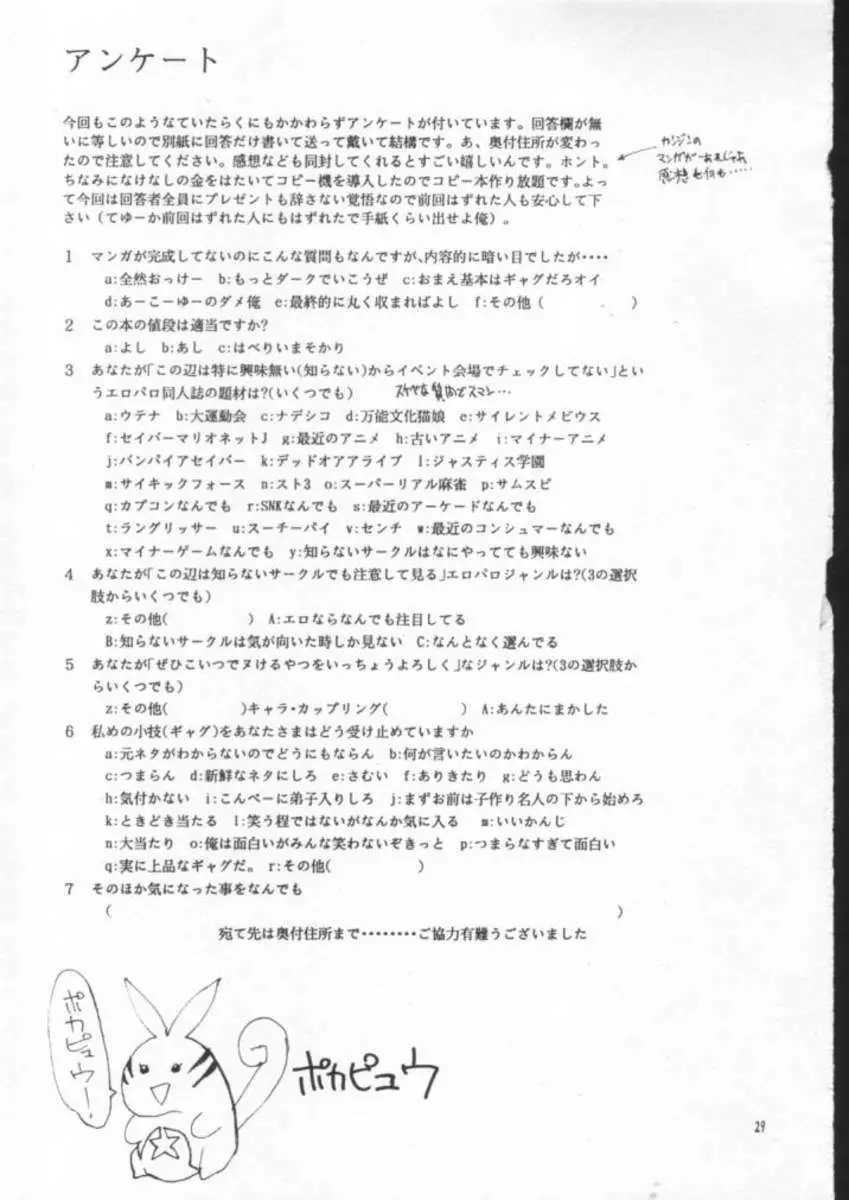 アンケート
今回もこのようなていたらくにもかかわらずアンケートが付いています。回答欄が無
いに等しいので別紙に回答だけ書いて送って戴いて結構です。あ、奥付住所が変わっ
たので注意してください。感想なども同封してくれるとすごい嬉しいんです。ホント。
ちなみになけなしの金をはたいてコピー機を導入したのでコピー本作り放題です。よっ
て今回は回答者全員にプレゼントも辞さない覚悟なので前回はずれた人も安心して下
さい（てゆーか前回はずれた人にもはずれたで手紙くらい出せよ俺）。
カンジンの
マンガが
感想も何も・・・・・
1 マンガが完成してないのにこんな質問もなんですが、内容的に暗い目でしたが・・・・
a:全然おっけー b:もっとダークでいこうぜ c:おまえ基本はギャグだろオイ
d:あーこーゆーのダメ俺 e:最終的に丸く収まればよし f:その他（ ）
2 この本の値段は適当ですか?
a:よし b:あし c:はべりいまそかり
3 あなたが「この辺は特に興味無い(知らない)からイベント会場でチェックしてない」とい
うエロパロ同人誌の題材は?(いくつでも) スケベな質問でスマン・・・
a:ウテナ b:大運動会 c:ナデシコ d:万能文化猫娘 e:サイレントメビウス
f:セイバーマリオネットJ g:最近のアニメ h:古いアニメ i:マイナーアニメ
j:バンパイアセイバー k:デッドオアアライブ l:ジャスティス学園
m:サイキックフォース n:スト3 o:スーパーリアル麻雀 p:サムスピ
q:カプコンなんでも r:SNKなんでも s:最近のアーケードなんでも
t:ラングリッサー u:スーチーパイ v:センチ w:最近のコンシュマーなんでも
x:マイナーゲームなんでも y:知らないサークルはなにやってても興味ない
4 あなたが「この辺は知らないサークルでも注意して見る」エロパロジャンルは?(3の選択
肢からいくつでも)
z:その他( ) A:エロならなんでも注目してる
B:知らないサークルは気が向いた時しか見ない C:なんとなく選んでる
5 あなたが「ぜひこいつでヌけるやつをいっちょうよろしく」なジャンルは?(3の選択肢か
らいくつでも)
z:その他( )キャラ・カップリング( ) A:あんたにまかした
6 私めの小技(ギャグ)をあなたさまはどう受け止めていますか
a:元ネタがわからないのでどうにもならん b:何が言いたいのかわからん
c:つまらん d:新鮮なネタにしろ e:さむい f:ありきたり g:どうも思わん
h:気付かない i:こんぺーに弟子入りしろ j:まずお前は子作り名人の下から始めろ
k:ときどき当たる l:笑う程ではないがなんか気に入る m:いいかんじ
n:大当たり o:俺は面白いがみんな笑わないぞきっと p:つまらなすぎて面白い
q:実に上品なギャグだ。 r:その他( )
7 そのほか気になった事をなんでも
( )
宛て先は奥付住所まで・・・・・・・・ご協力有難うございました
ポカピュウー!
ポカピュウ
29